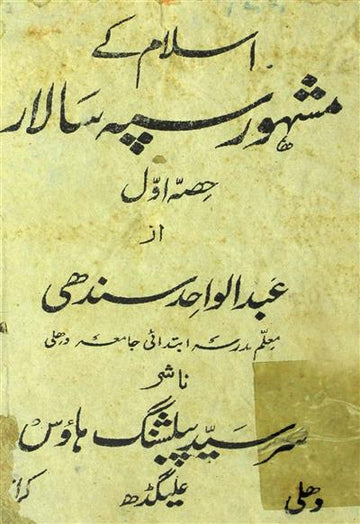 اسلام کے
مشہور سپہ سالار
حصہ اوّل
از
عبدالواحد سندھی
معلّم مدرسہ ابتدائی جامعہ دھلی
ناشر
سرسیّد پبلشنگ ہاؤس
دھلی علیگڈھ